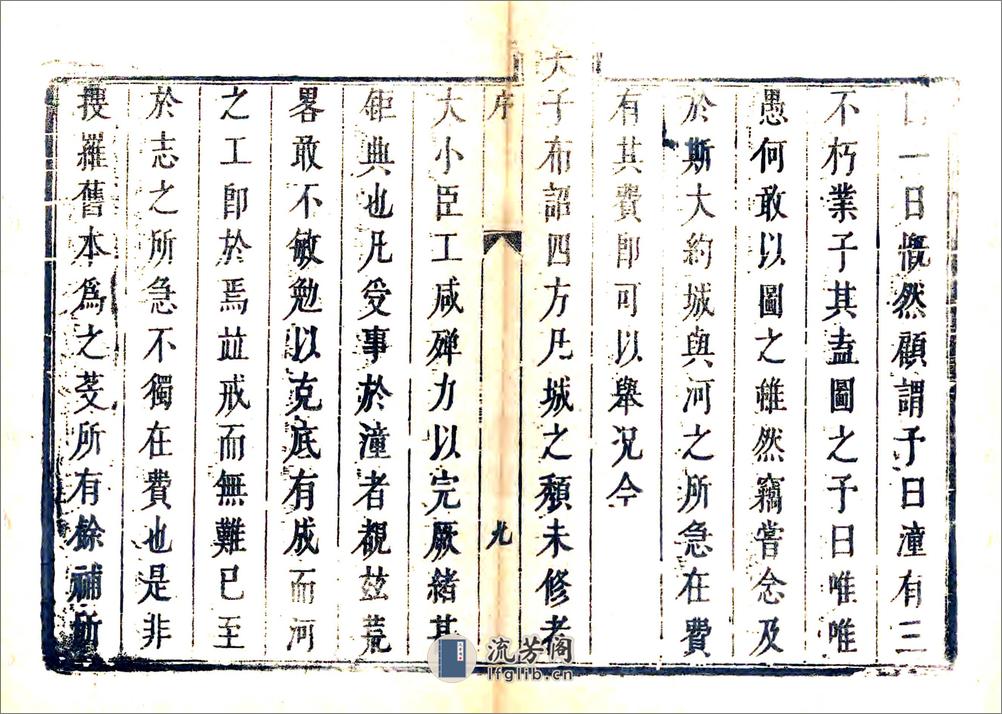 一日慨然顧謂予曰潼有三
不朽業子其盍圖之予曰唯唯
愚何敢以圖之雖然竊嘗念及
於斯大約城與河之所急在費
有其費即可以舉况今
天子布詔四方凡城之頽未修者
序 九
大小臣工咸殫力以完厥緒其
鉅典也凡受事於潼者覩玆荒
畧敢不敏勉以克底有成而河
之工即於焉竝戒而無難已至
於志之所急不獨在費也是非
搜羅舊本爲之芟所有餘補所
流芳阁
lfglib.cn